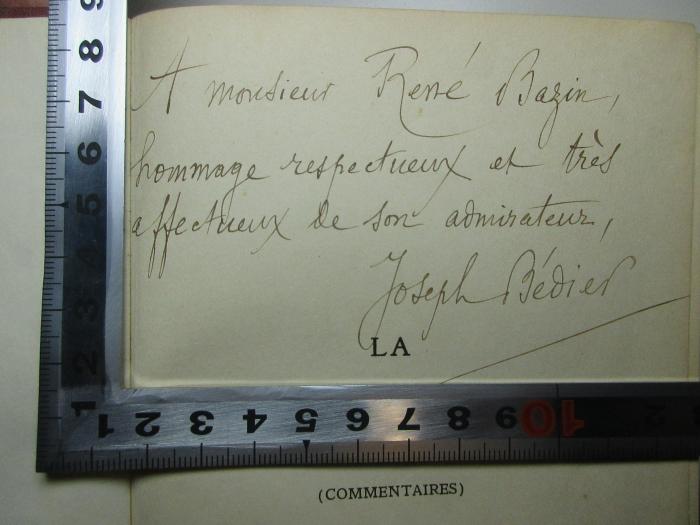 A monsieur René Bazin,
hommage respectueux et très
affectueux de son admirateur,
Joseph Bédier
LA
(COMMENTAIRES)
8
7
6
5
4
3
2
1
1 2 3 4 5 6 7 8 9 10
2